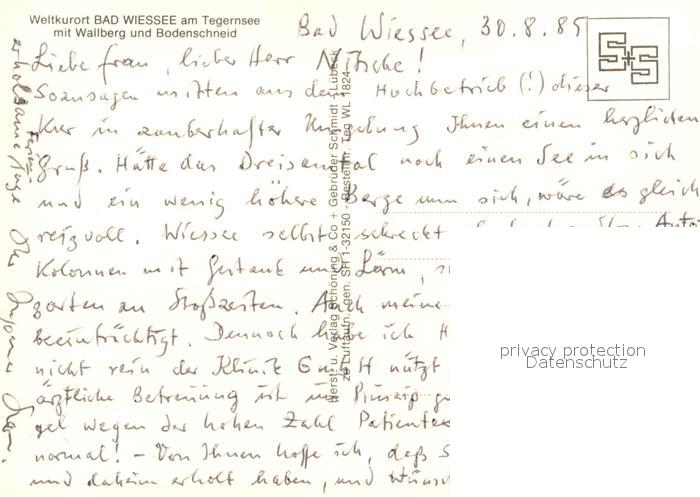 Weltkurort BAD WIESSEE am Tegernsee
mit Wallberg und Bodenschneid
Bad Wiessee, 30.8.85
Liebe Frau, lieber Herr Nitsche!
Sozusagen mitten aus dem Hochbetrieb (!) dieser
Kur in zauberhafter Umgebung Ihnen einen herzlichen
Gruß. Hätte das Dreisamtal noch einen See in sich
und ein wenig höhere Berge um sich, wäre es gleich
reizvoll. Wiessee selbst schreckt
Kolonnen mit Gestank und Lärm,
zarten an Stoßzeiten. Auch meine
beeinträchtigt. Dennoch habe ich
nicht rein der Klinik GmbH nützt
ärztliche Betreuung ist im Prinzip
wegen der hohen Zahl Patienten
normal! – Von Ihnen hoffe ich, daß S
und daheim erholt haben, und wünsch
erholsame Ferien
Tage
Ihr
S+S
Herst. u. Verlag Schöning & Co + Gebrüder Schmidt - Lübeck
Luftaufn. gen. SH 1-32150 - Bestell-Nr. Teg WL 1824
privacy protection
Datenschutz